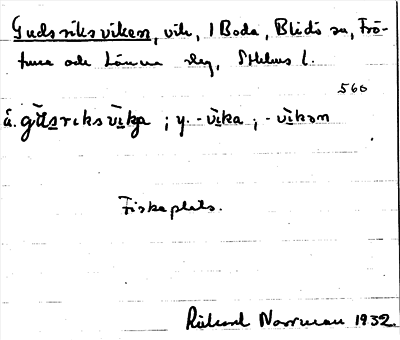 Gudsriksviken, vik, 1 Boda, Blidö sn, Frö-
tuna och Länna slg, Sthlms l.
560
ä. gu̅dsriksvi̅ka ; y. -vi̅ka ; -vi̅kən
Fiskeplats.
Rikard Norrman 1932.